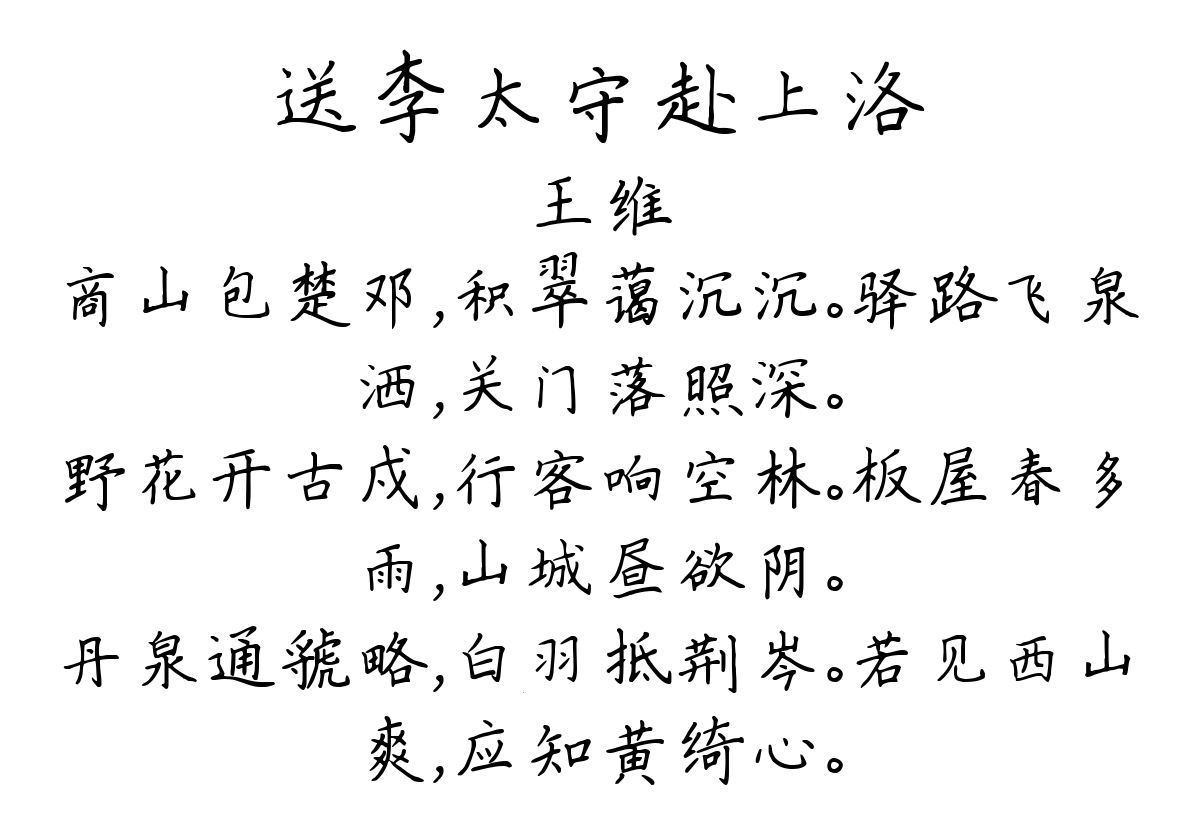 送李太守赴上洛
王维
商山包楚邓,积翠蔼沉沉。驿路飞泉
洒,关门落照深。
野花开古戍,行客响空林。板屋春多
雨,山城昼欲阴。
丹泉通虢略,白羽抵荆岑。若见西山
爽,应知黄绮心。